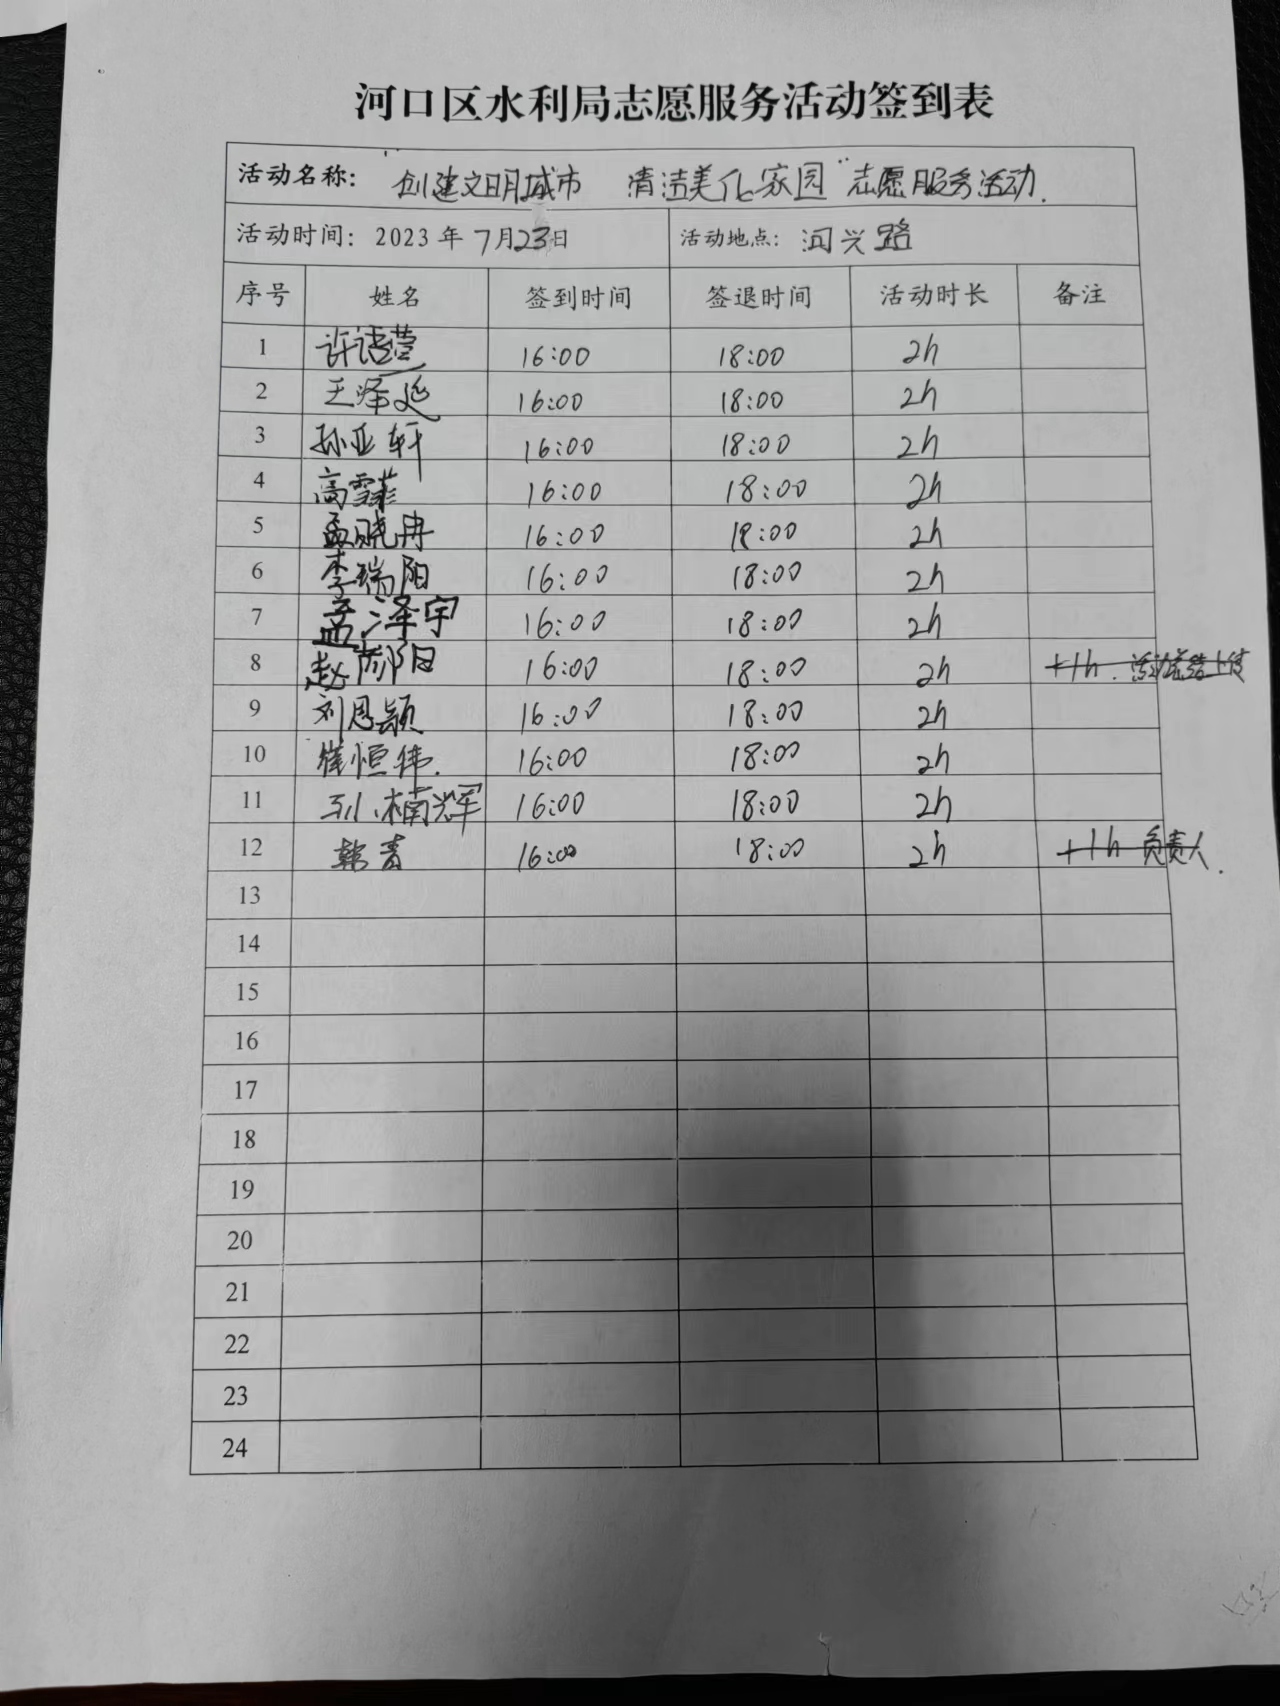 河口区水利局志愿服务活动签到表
活动名称： "创建文明城市 清洁美化家园"志愿服务活动.
活动时间：2023年7月23日 活动地点：河兴路
序号 姓名 签到时间 签退时间 活动时长 备注
1 许语萱 16:00 18:00 2h
2 王泽延 16:00 18:00 2h
3 孙亚轩 16:00 18:00 2h
4 高雪菲 16:00 18:00 2h
5 孟晓冉 16:00 18:00 2h
6 李瑞阳 16:00 18:00 2h
7 孟泽宇 16:00 18:00 2h
8 赵 阳 16:00 18:00 2h +1h. 活动总结上传
9 刘恩颖 16:00 18:00 2h
10 崔恒伟. 16:00 18:00 2h
11 楠辉 16:00 18:00 2h
12 韩青 16:00 18:00 2h +1h 负责人.
13
14
15
16
17
18
19
20
21
22
23
24